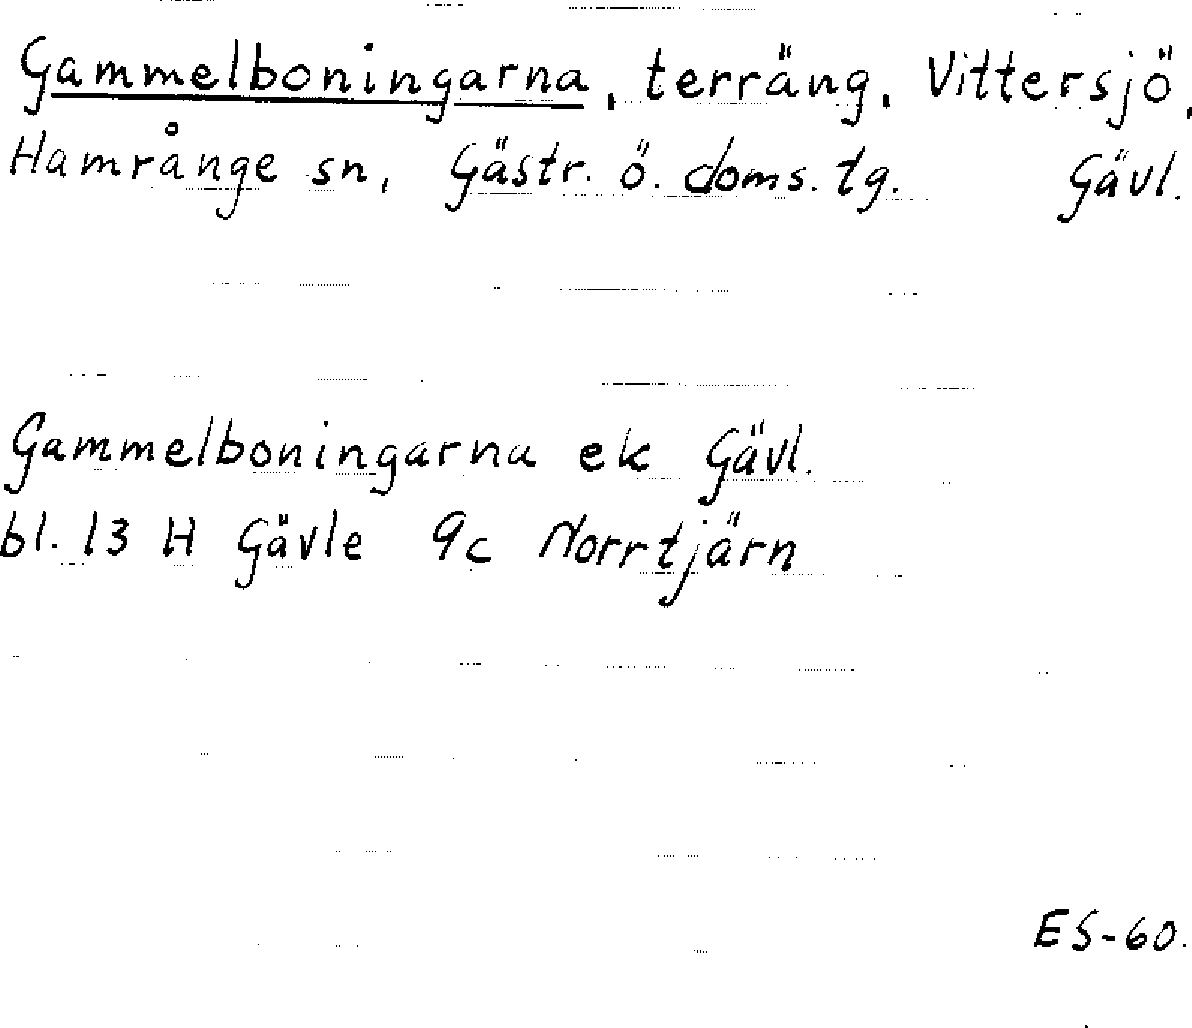 Gammelboningarna, terräng, Vittersjö,
Hamrånge sn, Gästr. ö. doms. tg. Gävl.
Gammelboningarna ek Gävl.
bl. 13 H Gävle 9c Norrtjärn
ES-60.